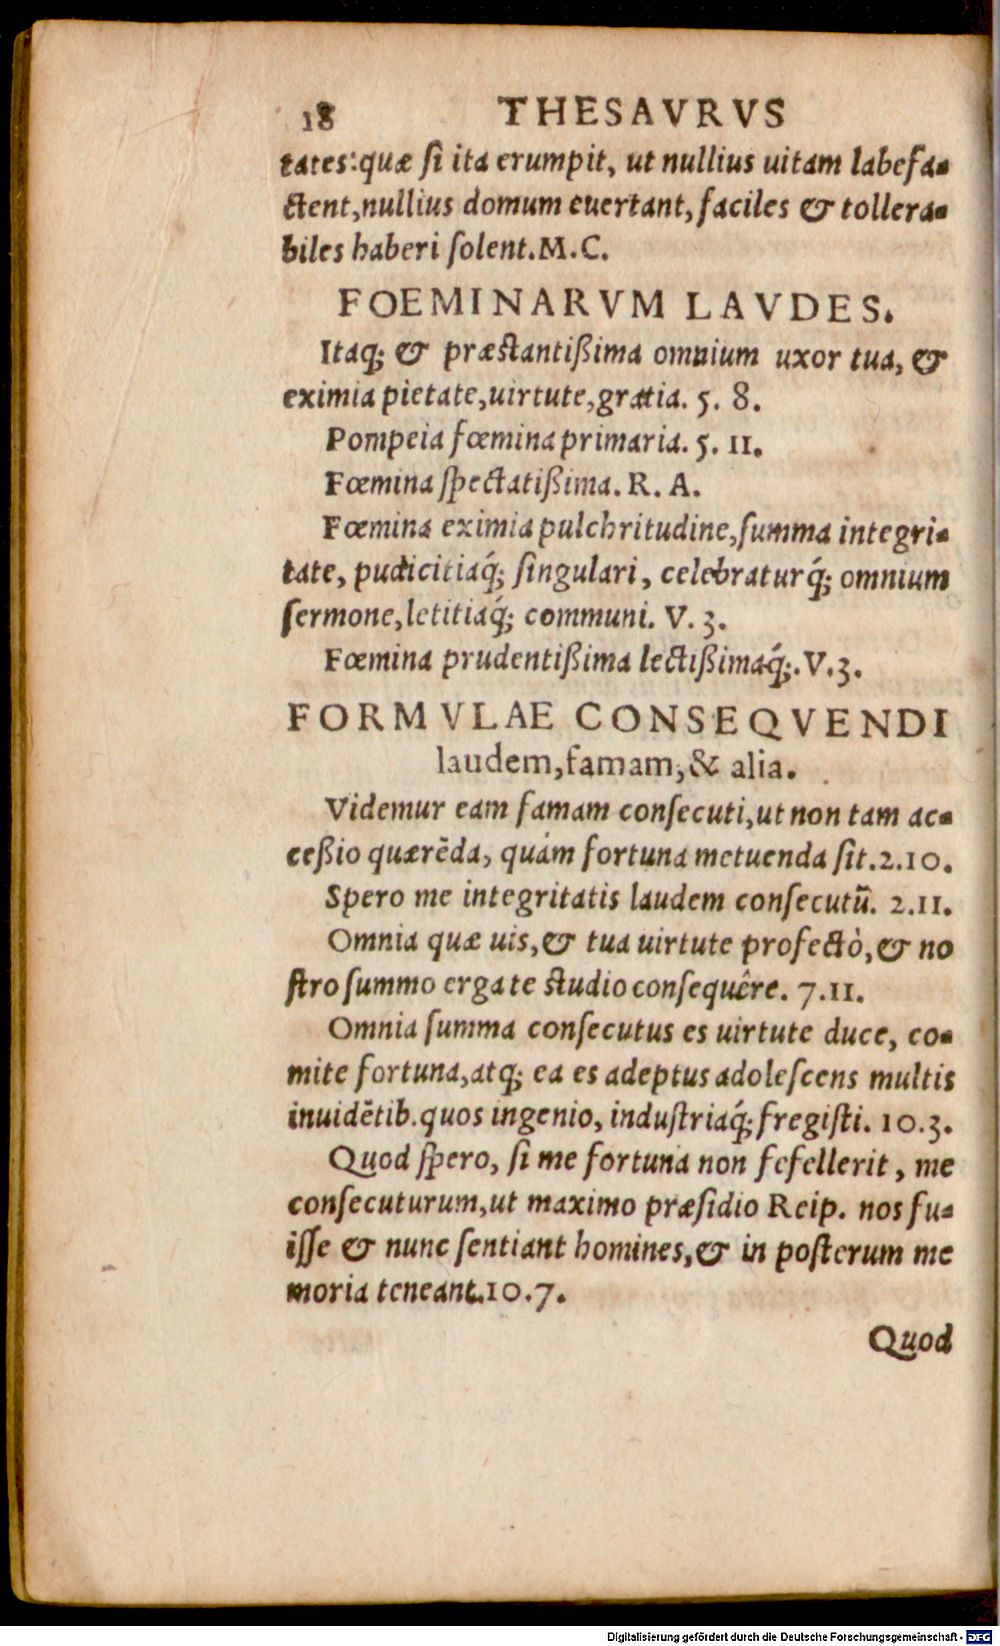 18 THESAVRVS
tates:quæ ſi ita erumpit, ut nullius uitam labefa-
ctent,nullius domum euertant, faciles & tollera-
biles haberi ſolent.M.C.
FOEMINARVM LAVDES.
Itaq; & præstantißima omnium uxor tua, &
eximia pietate,uirtute,gratia. 5. 8.
Pompeia fœmina primaria. 5. 11.
Fœmina ſpectatißima. R. A.
Fœmina eximia pulchritudine,ſumma integri-
tate, pudicitiaq́; ſingulari, celebraturq́; omnium
ſermone,letitiaq́; communi. V. 3.
Fœmina prudentißima lectißimaq́;.V.3.
FORMVLAE CONSEQVENDI
laudem,famam,& alia.
Videmur eam famam conſecuti,ut non tam ac-
ceßio quærēda, quám fortuna metuenda ſit.2.10.
Spero me integritatis laudem conſecutū. 2.11.
Omnia quæ uis,& tua uirtute profectò,& no
ſtro ſummo erga te studio conſequêre. 7.11.
Omnia ſumma conſecutus es uirtute duce, co-
mite fortuna,atq; ea es adeptus adoleſcens multis
inuidētib.quos ingenio, induſtriaq́; fregiſti. 10.3.
Quod ſpero, ſi me fortuna non fefellerit, me
conſecuturum,ut maximo præſidio Reip. nos fu-
iſſe & nunc ſentiant homines,& in poſterum me
moria teneant.10.7.
Quod
Digitalisierung gefördert durch die Deutsche Forschungsgemeinschaft - DFG